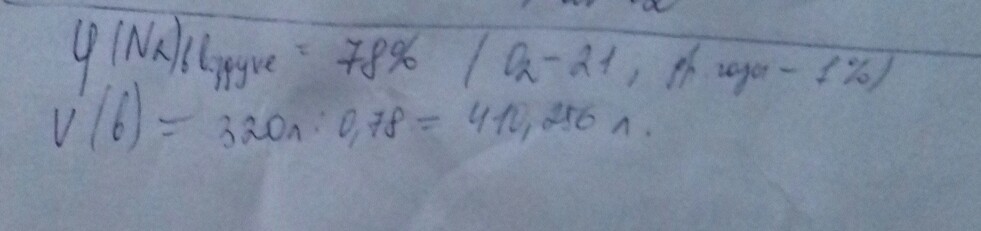 φ(N₂)в воздухе = 78% (O₂ - 21, др. газы - 1%)
V(в) = 320л : 0,78 = 410,256 л.